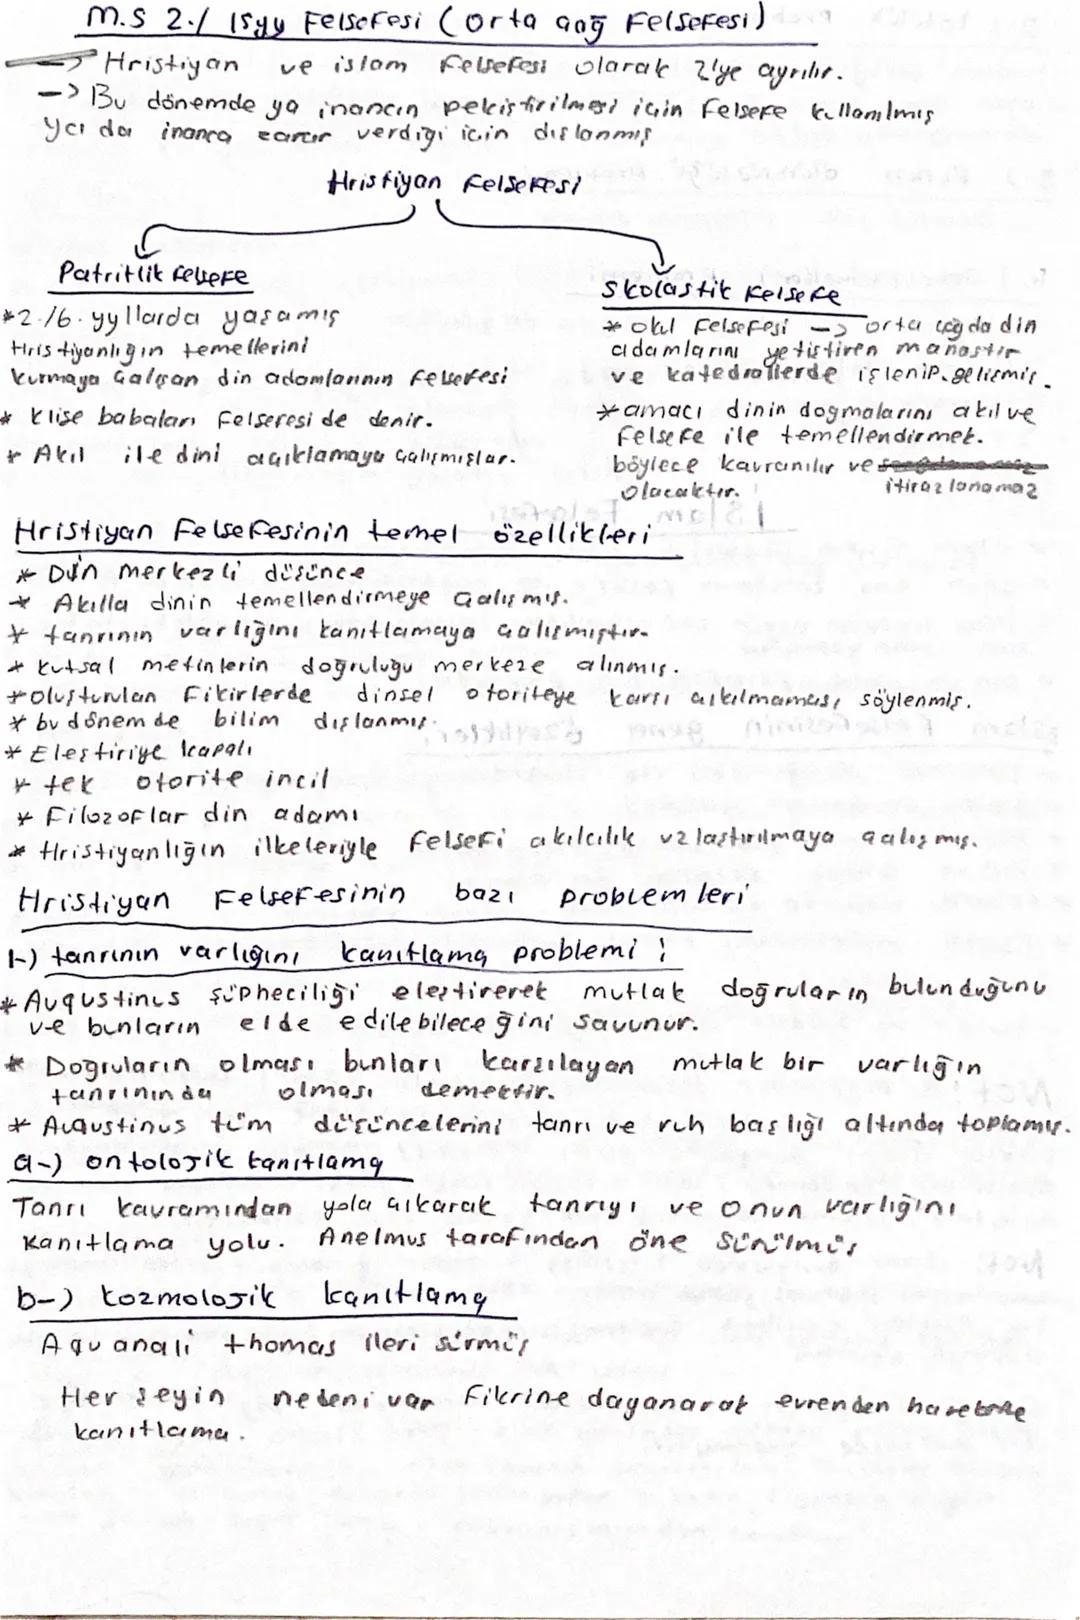 M.S 2./ 15yy Felsefesi (Orta çağ Felsefesi)
-> Hristiyan ve islam felsefesi olarak 2'ye ayrılır.
-> Bu dönemde ya inancın pekiştirilmesi için Felsefe kullanılmış
ya da inanca zarar verdiği için dışlanmış
Hristiyan Felsefesi
Patritlik Felsefe
*2./6. yyllarda yaşamış
Hristiyanlığın temellerini
kurmaya Çalışan din adamlarının Felsefesi
* klise babaları Felsefesi de denir.
* Akıl ile dini açıklamaya çalışmışlar.
Skolastik Felsefe
* okul Felsefesi -> orta çağda din
adamlarını yetiştiren manastır
ve katedrallerde işlenip gelişmiş.
* amacı dinin dogmalarını akıl ve
Felsefe ile temellendirmek.
böylece kavranılır ve
itirazlanamaz
Olacaktır.
Hristiyan Felsefesinin temel özellikleri
* Din merkezli düşünce
* Akılla dinin temellendirmeye Çalışmış.
* tanrının varlığını kanıtlamaya çalışmıştır.
* kutsal metinlerin doğruluğu merkeze alınmış.
* oluşturulan Fikirlerde dinsel otoriteye karşı çıkılmaması söylenmiş.
* bu dönemde bilim dışlanmış.
* Eleştiriye kapalı
* tek otorite incil
* Filozoflar din adamı
* Hristiyanlığın ilkeleriyle Felsefi akılcılık uzlaştırılmaya çalışmış.
Hristiyan Felsefesinin bazı problemleri
1-) tanrının varlığını kanıtlama problemi:
* Augustinus şüpheciliği eleştirerek mutlak doğruların bulunduğunu
ve bunların elde edilebileceğini savunur.
* Doğruların olması bunları karşılayan mutlak bir varlığın
tanrınında olması demektir.
* Augustinus tüm düşüncelerini tanrı ve ruh başlığı altında toplamış.
a-) ontolojik kanıtlama
Tanrı kavramından yola çıkarak tanrıyı ve onun varlığını
Kanıtlama yolu. Anelmus tarafından öne sürülmüş
b-) kozmolojik kanıtlama
Aquanali thomas ileri sürmüş
Her şeyin nedeni var Fikrine dayanarak evrenden hareketle
kanıtlama.